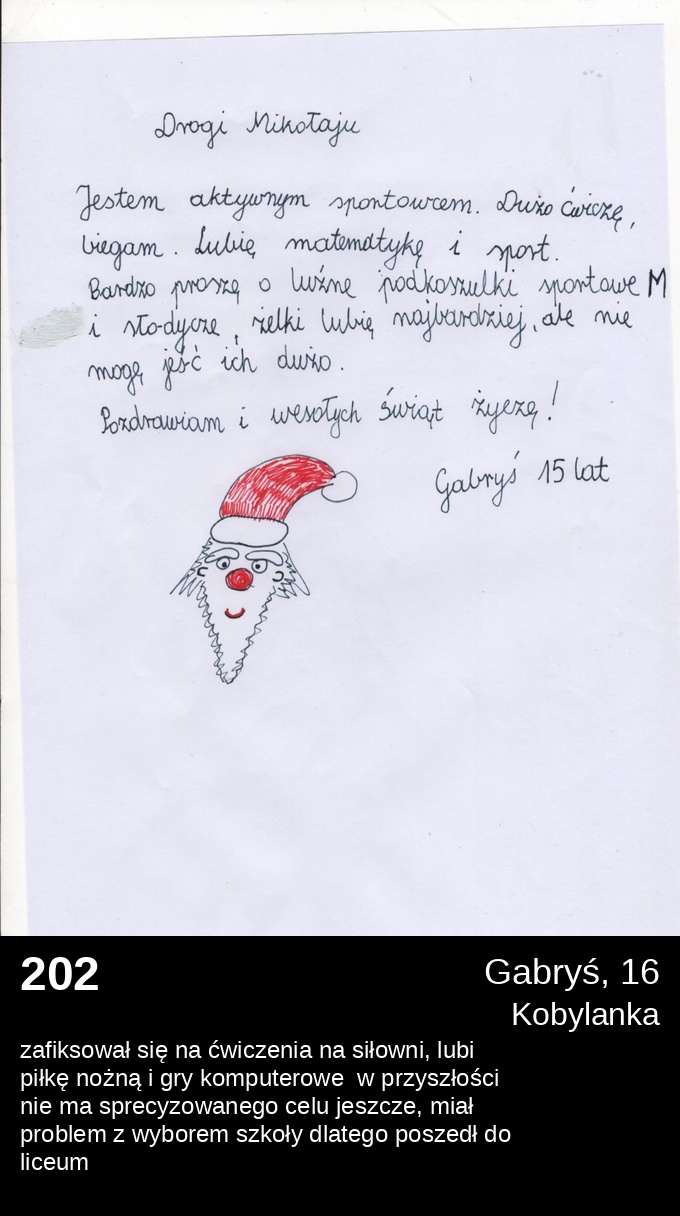 Drogi Mikołaju
Jestem aktywnym sportowcem. Dużo ćwiczę,
biegam. Lubię matematykę i sport.
Bardzo proszę o luźne podkoszulki sportowe M
i słodycze, żelki lubię najbardziej, ale nie
mogę jeść ich dużo.
Pozdrawiam i wesołych świąt życzę!
Gabryś 15 lat
202
Gabryś, 16
Kobylanka
zafiksował się na ćwiczenia na siłowni, lubi
piłkę nożną i gry komputerowe w przyszłości
nie ma sprecyzowanego celu jeszcze, miał
problem z wyborem szkoły dlatego poszedł do
liceum